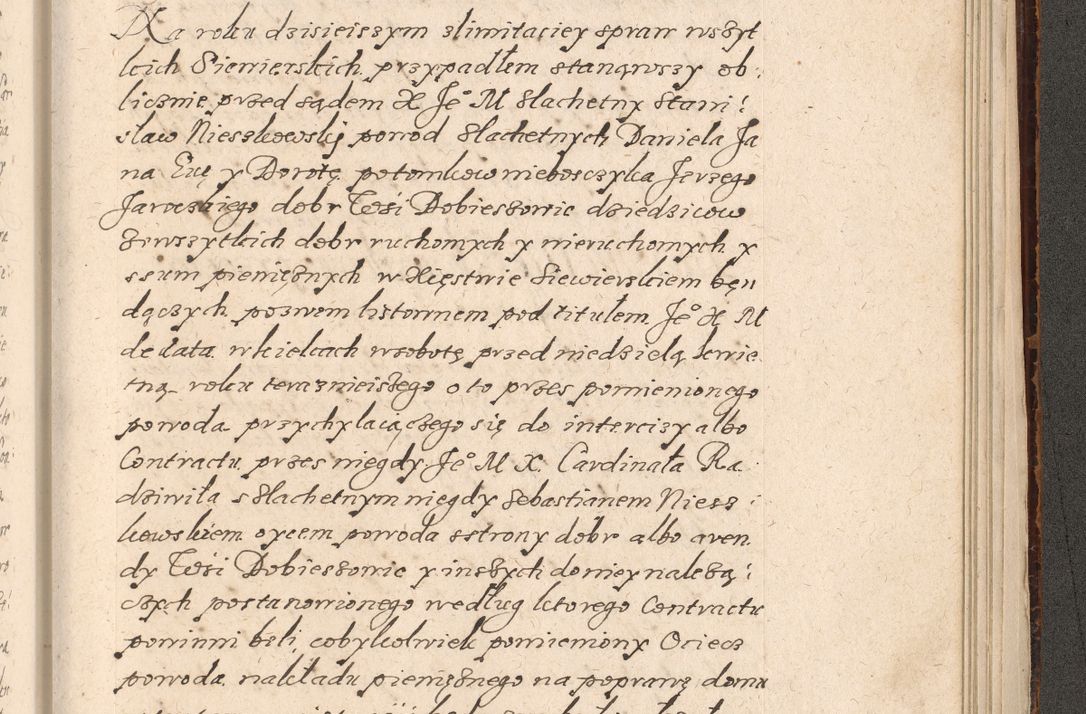 Na roku dzisieiszym zlimitaciey spraw wszyt
kich Siewierskich przypadłem stanąwszy ob:
licznie przed sądem X Je° M Slachetny Stani:
sław Nieszkowskÿ powod Slachetnych Daniela Ja
na Ewę y Dorotę potomkow nieboszczyka Jerzego
Jarockiego dobr Wsi Dobieszowic dziedzicow
zewszytkich dobr ruchomych y nieruchomych y
ssum pieniężnych w Xięstwie Siewierskiem bęn
dących pozwem listownem pod titułem Je° X M
de data w kielcach wsobotę przed niedzielą kwie
tną roku teraznieiszego o to przes pomienionego
powoda przychylaiączego się do intercizy albo
Contractu przes niegdy Je° M X. Cardinała Ra
dziwiła s Slachetnym niegdy Sebastianem Niesz:
kowskiem oycem powoda sstrony dobr albo aren
dy Wsi Dobieszowic y inszych do niey należą:
czych postanowionego według ktorego Contractu
powinni beli, cobykolwiek pomieniony Ociecz
powoda nakładu pieniężnego na poprawę domu